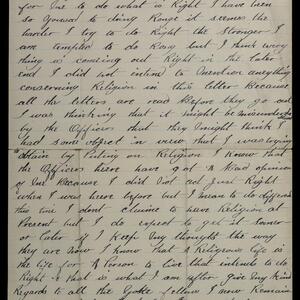 for me to do what is Right I have been
so used to doing Rong it seems the
harder I try to do Right the Stronger I
am tempted to do Rong but I think every
thing is coming out Right in the Later
end I did not intend to mention anything
concerning Religion in this letter Because
all the letters are read Before they go out
I was thinking that it might be misunderstood
by the Officers that they might think I
had some object in view that I was trying
obtain by Puting on Religion I know that
the Officers here have got a Bad opinion
of me Because I did Not act Just Right
when I was here before but I mean to do different
this time I dont claime to have Religion at
Present but I do expect to get it sooner
or later if I keep my thoughts the way
they are now I know that a Religious life is
the life for a Person to live that intends to do
Right & that is what I am after give my kind
Regards to all the folks Follow I now Remain